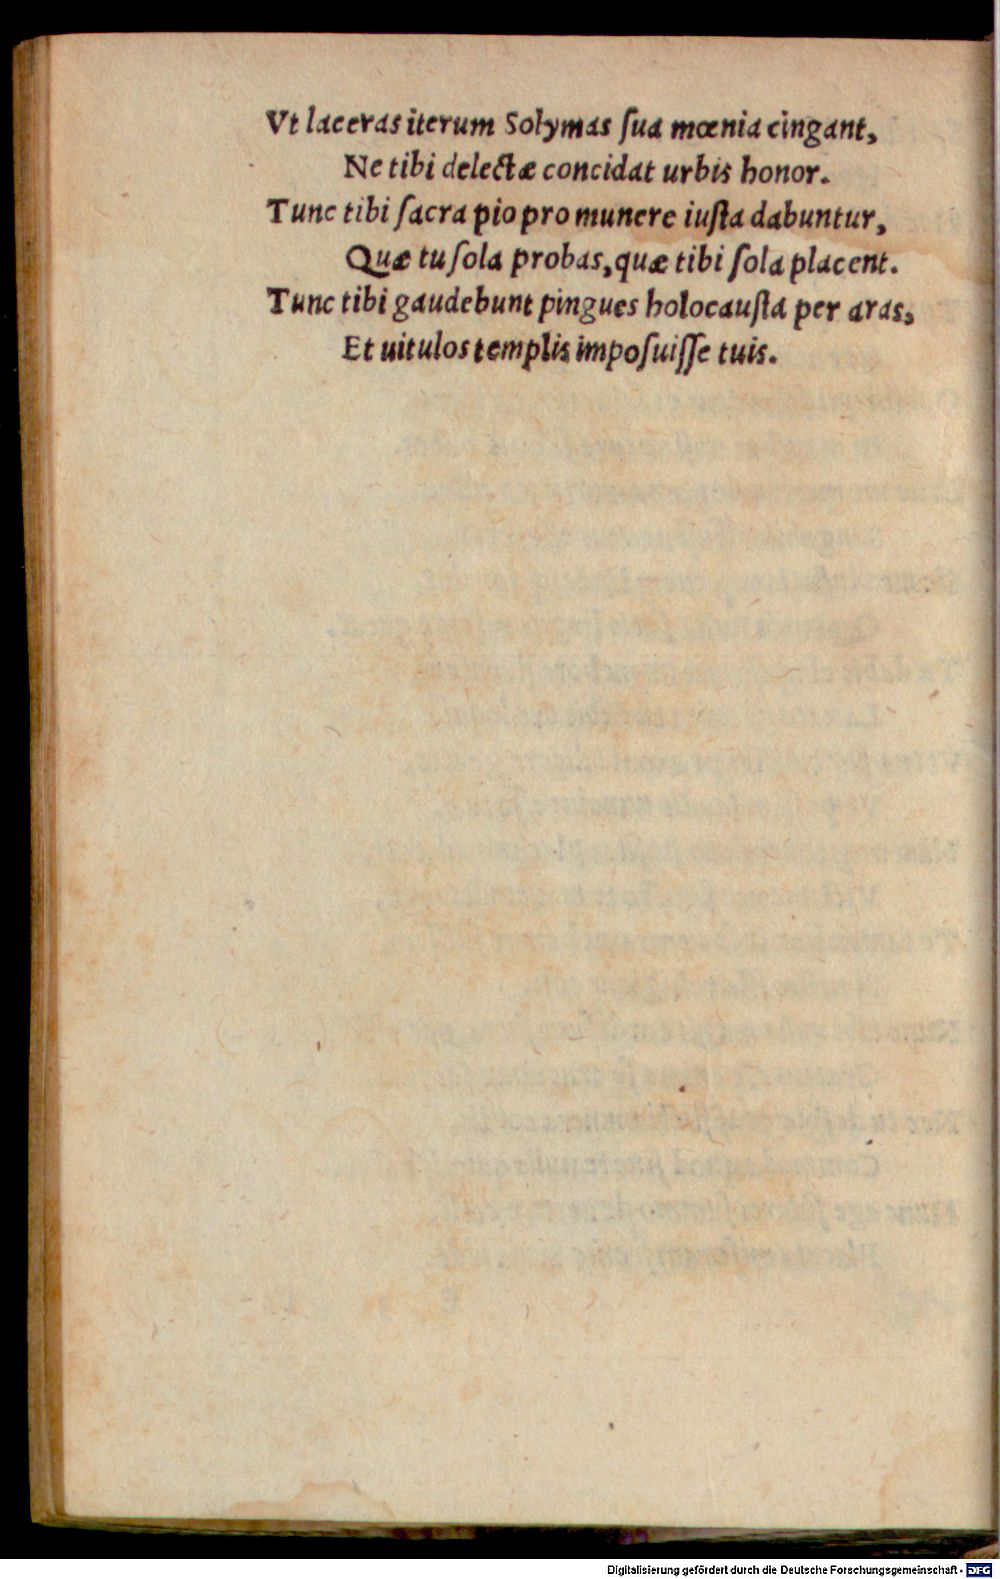 Vt laceras iterum Solymas ſua mœnia cingant,
Ne tibi delectæ concidat urbis honor.
Tunc tibi ſacra pio pro munere iuſta dabuntur,
Quæ tu ſola probas, quæ tibi ſola placent.
Tunc tibi gaudebunt pingues holocauſta per aras,
Et uitulos templis impoſuiſſe tuis.
Digitalisierung gefördert durch die Deutsche Forschungsgemeinschaft - DFG